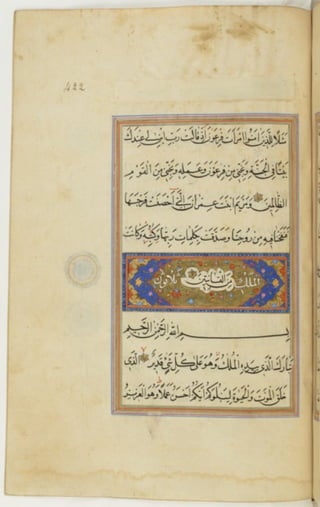 422
مثلا للذین امنوا امرات فرعون اذ قالت رب ابن لی عندک
بیتا فی الجنة ونجنی من فرعون وعمله ونجنی من القوم
الظالمین ومریم ابنت عمران التی احصنت فرجها
فنفخنا فیه من روحنا وصدقت بکلمات ربها وکتبه وکانت
من القانتین
الملک ثلاثون
بسم الله الرحمن الرحیم
تبارک الذی بیده الملک وهو علی کل شی قدیر الذی
خلق الموت والحیوة لیبلوکم ایکم احسن عملا وهو العزیز